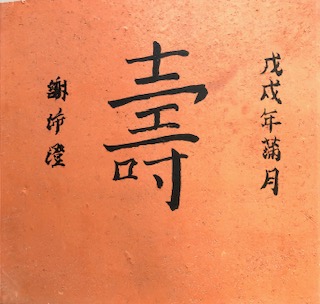 戊戌年蒲月
壽
謝沛澄